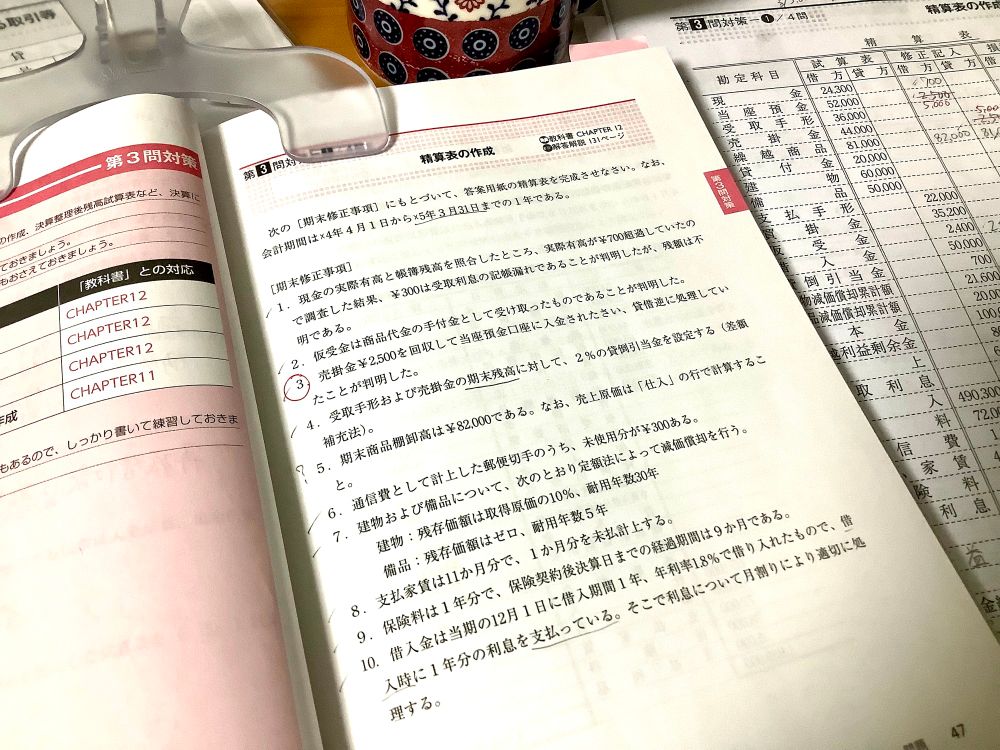 る取引等
貸
第3問対策
の作成、決算整理後残高試算表など、決算に
ておきましょう。
もおさえておきましょう。
「教科書」との対応
CHAPTER12
CHAPTER12
CHAPTER12
CHAPTER11
作成
もあるので、しっかり書いて練習しておきま
第3問対
精算表の作成
教科書 CHAPTER 12
解答解説 131ページ
次の［期末修正事項］にもとづいて、答案用紙の精算表を完成させなさい。なお、
会計期間は×4年4月1日から×5年3月31日までの1年である。
［期末修正事項］
1．現金の実際有高と帳簿残高を照合したところ、実際有高が¥700超過していたの
で調査した結果、¥300は受取利息の記帳漏れであることが判明したが、残額は不
明である。
2．仮受金は商品代金の手付金として受け取ったものであることが判明した。
3．売掛金¥2,500を回収して当座預金口座に入金されたさい、貸借逆に処理してい
たことが判明した。
4．受取手形および売掛金の期末残高に対して、2％の貸倒引当金を設定する（差額
補充法）。
5．期末商品棚卸高は¥82,000である。なお、売上原価は「仕入」の行で計算するこ
と。
6．通信費として計上した郵便切手のうち、未使用分が¥300ある。
7．建物および備品について、次のとおり定額法によって減価償却を行う。
建物：残存価額は取得原価の10％、耐用年数30年
備品：残存価額はゼロ、耐用年数5年
8．支払家賃は11か月分で、1か月分を未払計上する。
9．保険料は1年分で、保険契約後決算日までの経過期間は9か月である。
10．借入金は当期の12月1日に借入期間1年、年利率1.8％で借り入れたもので、借
入時に1年分の利息を支払っている。そこで利息について月割りにより適切に処
理する。
第3問対策
47
第3問対策－❶／4問
精算表の作
精算表
勘定科目 試算表 修正記入 損
借方 貸方 借方 貸方 借
現金 24,300 700
当座預金 52,000 2,500
5,000
受取手形 36,000
売掛金 44,000
繰越商品 81,000 82,000
貸付金 20,000
建物 60,000
備品 50,000
支払手形 22,000
掛金 35,200
受金 2,400
入金 50,000
倒引当金 700
物減価償却累計額
品減価償却累計額 20,00
本金
越利益剰余金
上 490,300
取利息
入
料 72,0
信費
家賃
険料
利息